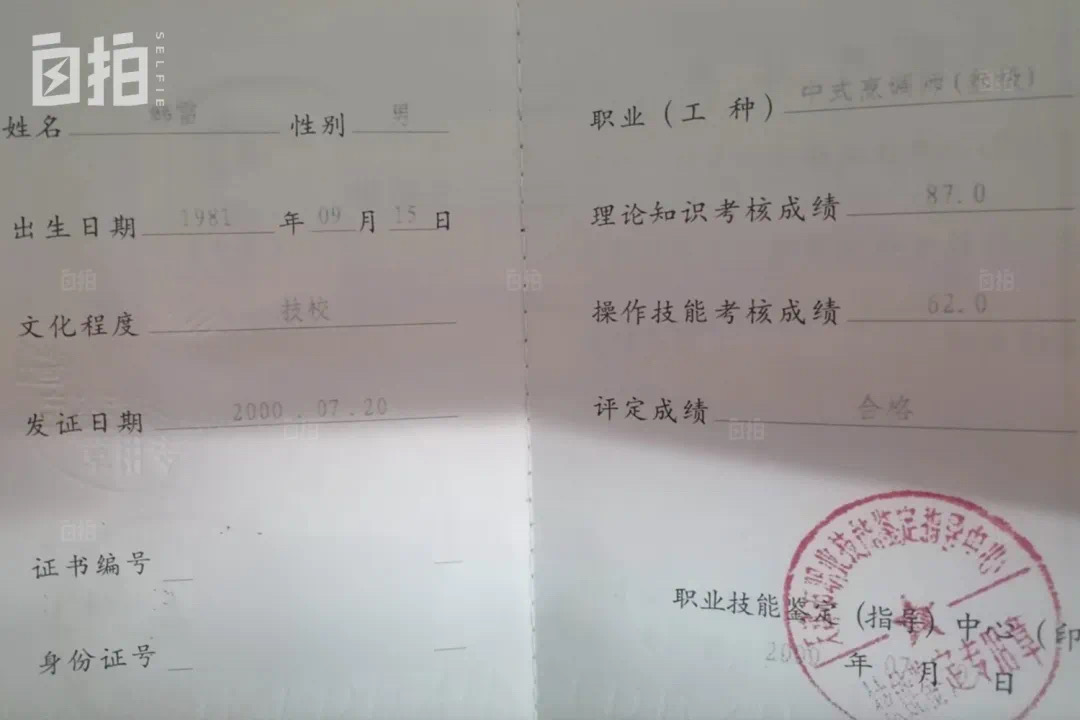 自拍
SELFIE
姓名 韩雷 性别 男
出生日期 1981 年 09 月 15 日
文化程度 技校
发证日期 2000.07.20
证书编号
身份证号
职业(工种) 中式烹调师(初级)
理论知识考核成绩 87.0
操作技能考核成绩 62.0
评定成绩 合格
职业技能鉴定(指导)中心(印
2000 年 07 月 日
职业技能鉴定指导中心
自拍
自拍
自拍
自拍
自拍
自拍